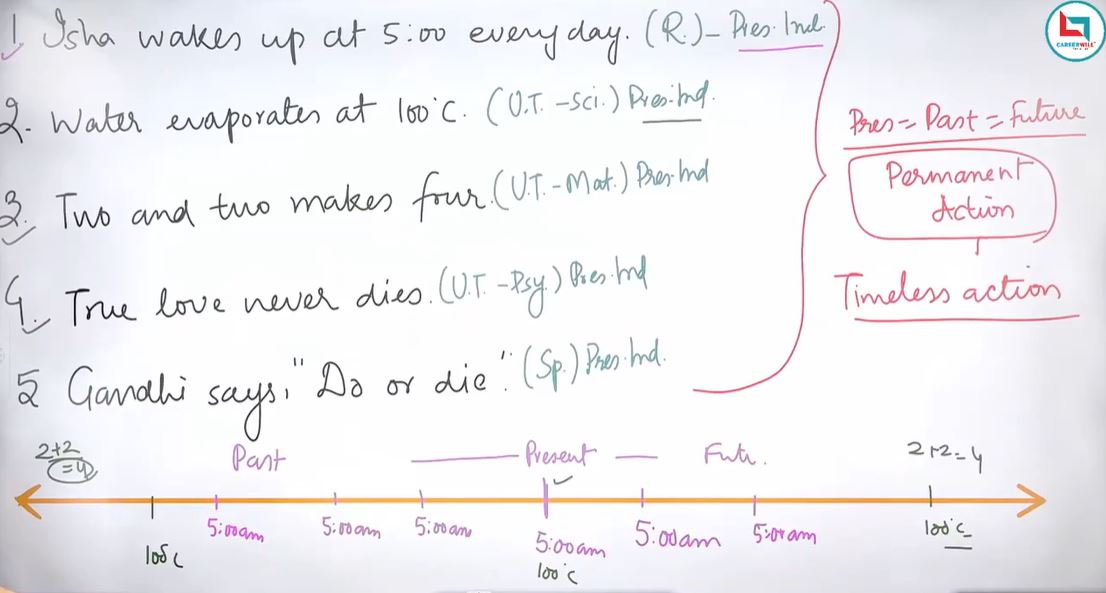 1 Isha wakes up at 5:00 everyday. (R.) - Pres. Ind.
2. Water evaporates at 100°C. (U.T. - Sci.) Pres. Ind.
3. Two and two makes four. (U.T. - Mat.) Pres. Ind
4. True love never dies. (U.T. - Psy.) Pres. Ind
5 Gandhi says, "Do or die". (Sp.) Pres. Ind.
CAREERWILL
Pres = Past = Future
Permanent
Action
Timeless action
2+2
=4
Past
Present
Futu.
2+2=4
5:00am
5:00am
5:00am
5:00am
5:00am
5:00am
100°C
100°C
100°C